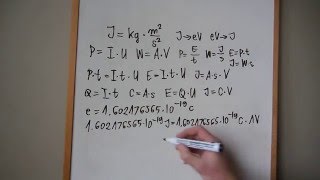 J = kg · m²/s² J→eV eV→J
P = I · U W = A · V P = E/t W = J/s E = P·t J = W·s
P·t = I·t·U E = I·t·U J = A·s·V
Q = I·t C = A·s E = Q·U J = C·V
e = 1.602176565·10⁻¹⁹ C
1.602176565·10⁻¹⁹ J = 1.602176565·10⁻¹⁹ C·1V